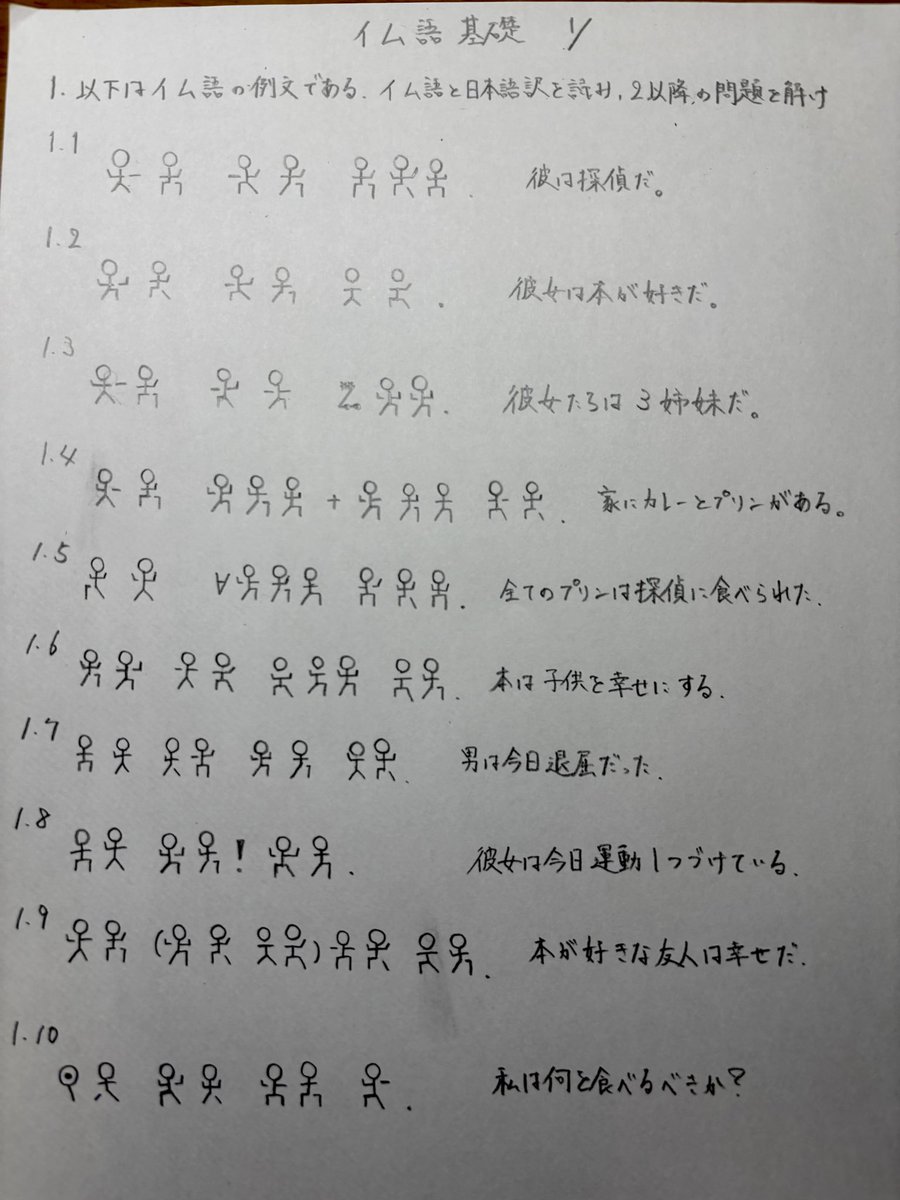 イム語 基礎 1/
1. 以下はイム語の例文である. イム語と日本語訳を読み, 2以降の問題を解け
1.1 彼は探偵だ。
1.2 彼女は本が好きだ。
1.3 彼女たちは3姉妹だ。
1.4 + 家にカレーとプリンがある。
1.5 ∀ 全てのプリンは探偵に食べられた.
1.6 本は子供を幸せにする.
1.7 男は今日退屈だった.
1.8 ! 彼女は今日運動しつづけている.
1.9 ( ) 本が好きな友人は幸せだ.
1.10 私は何を食べるべきか?